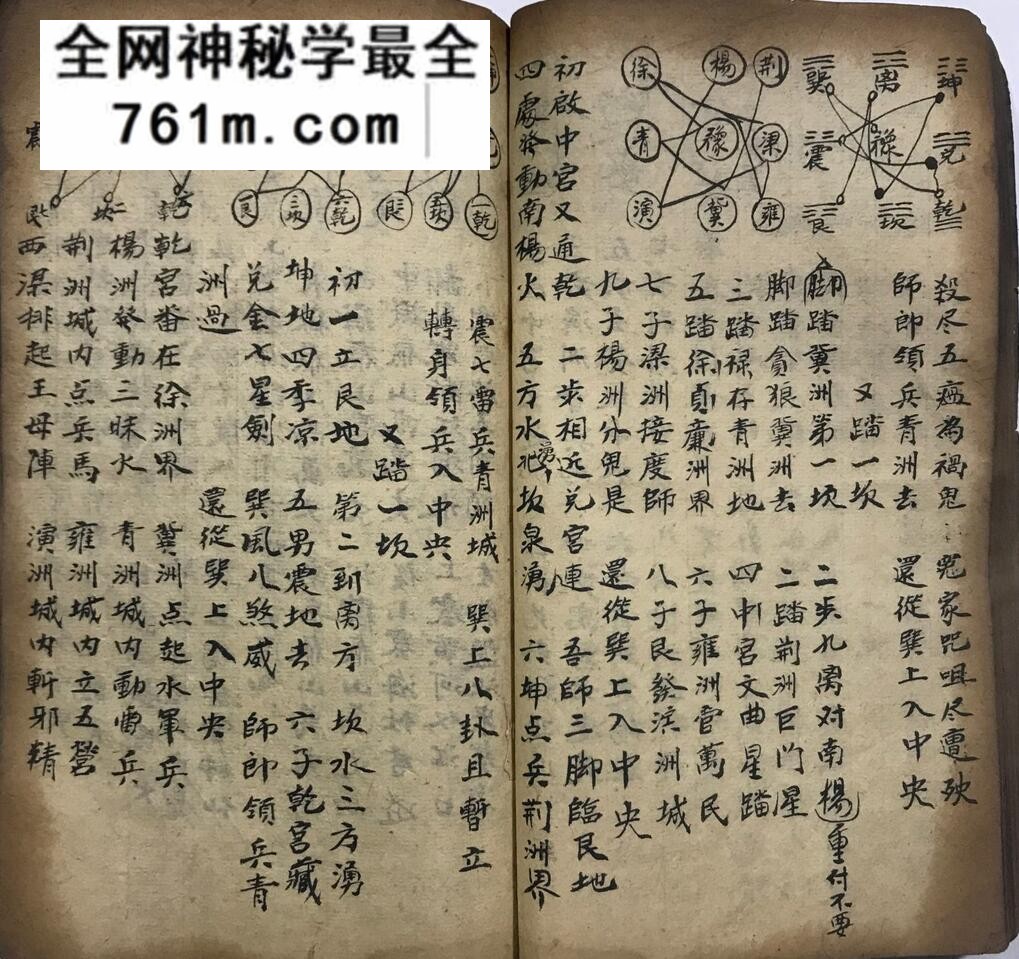 全网神秘学最全
761m.com
巽 离 坤
震 祿 兑
艮 坎 乾
徐 楊 荆
青 豫 梁
演 冀 雍
殺尽五瘟為禍鬼 冤家咒咀尽遭殃
師郎領兵青洲去 還從巽上入中央
又踏一坎
脚踏冀洲第一坎 二步九离对南楊 重付不要
脚踏貪狼冀洲去 二踏荆洲巨门星
三踏禄存青洲地 四中宮文曲星踏
五踏徐貞廉洲界 六子雍洲管萬民
七子梁洲接度師 八子艮發演洲城
九子楊洲分鬼是 還從巽上入中央
初啟中宮又通乾 二步相近兑宮連 吾師三脚臨艮地
四處發動南楊火 五方水北坎泉湧 六坤点兵荆洲界
一乾 五坎 艮
六乾 三坎 艮
乾 坎二 艮
震
震七雷兵青洲城 巽上八卦且暫立
轉身領兵入中央
又踏一坎
初一立艮地 第二到离方 坎水三方湧
坤地四季凉 五男震地去 六子乾宮藏
兑金七星劍 巽風八煞威 師郎領兵青
洲過 還從巽上入中央
乾宮番在徐洲界 冀洲点起水軍兵
楊洲發動三昧火 青洲城内動雷兵
荆洲城内点兵馬 雍洲城内立五營
西梁排起王母陣 演洲城内斬邪精